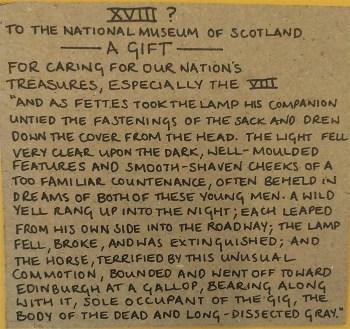 XVIII ?
TO THE NATIONAL MUSEUM OF SCOTLAND
— A GIFT —
FOR CARING FOR OUR NATION'S
TREASURES, ESPECIALLY THE VIII
"AND AS FETTES TOOK THE LAMP HIS COMPANION
UNTIED THE FASTENINGS OF THE SACK AND DREW
DOWN THE COVER FROM THE HEAD. THE LIGHT FELL
VERY CLEAR UPON THE DARK, WELL-MOULDED
FEATURES AND SMOOTH-SHAVEN CHEEKS OF A
TOO FAMILIAR COUNTENANCE, OFTEN BEHELD IN
DREAMS OF BOTH OF THESE YOUNG MEN. A WILD
YELL RANG UP INTO THE NIGHT; EACH LEAPED
FROM HIS OWN SIDE INTO THE ROADWAY; THE LAMP
FELL, BROKE, AND WAS EXTINGUISHED; AND
THE HORSE, TERRIFIED BY THIS UNUSUAL
COMMOTION, BOUNDED AND WENT OFF TOWARD
EDINBURGH AT A GALLOP, BEARING ALONG
WITH IT, SOLE OCCUPANT OF THE GIG, THE
BODY OF THE DEAD AND LONG-DISSECTED GRAY."